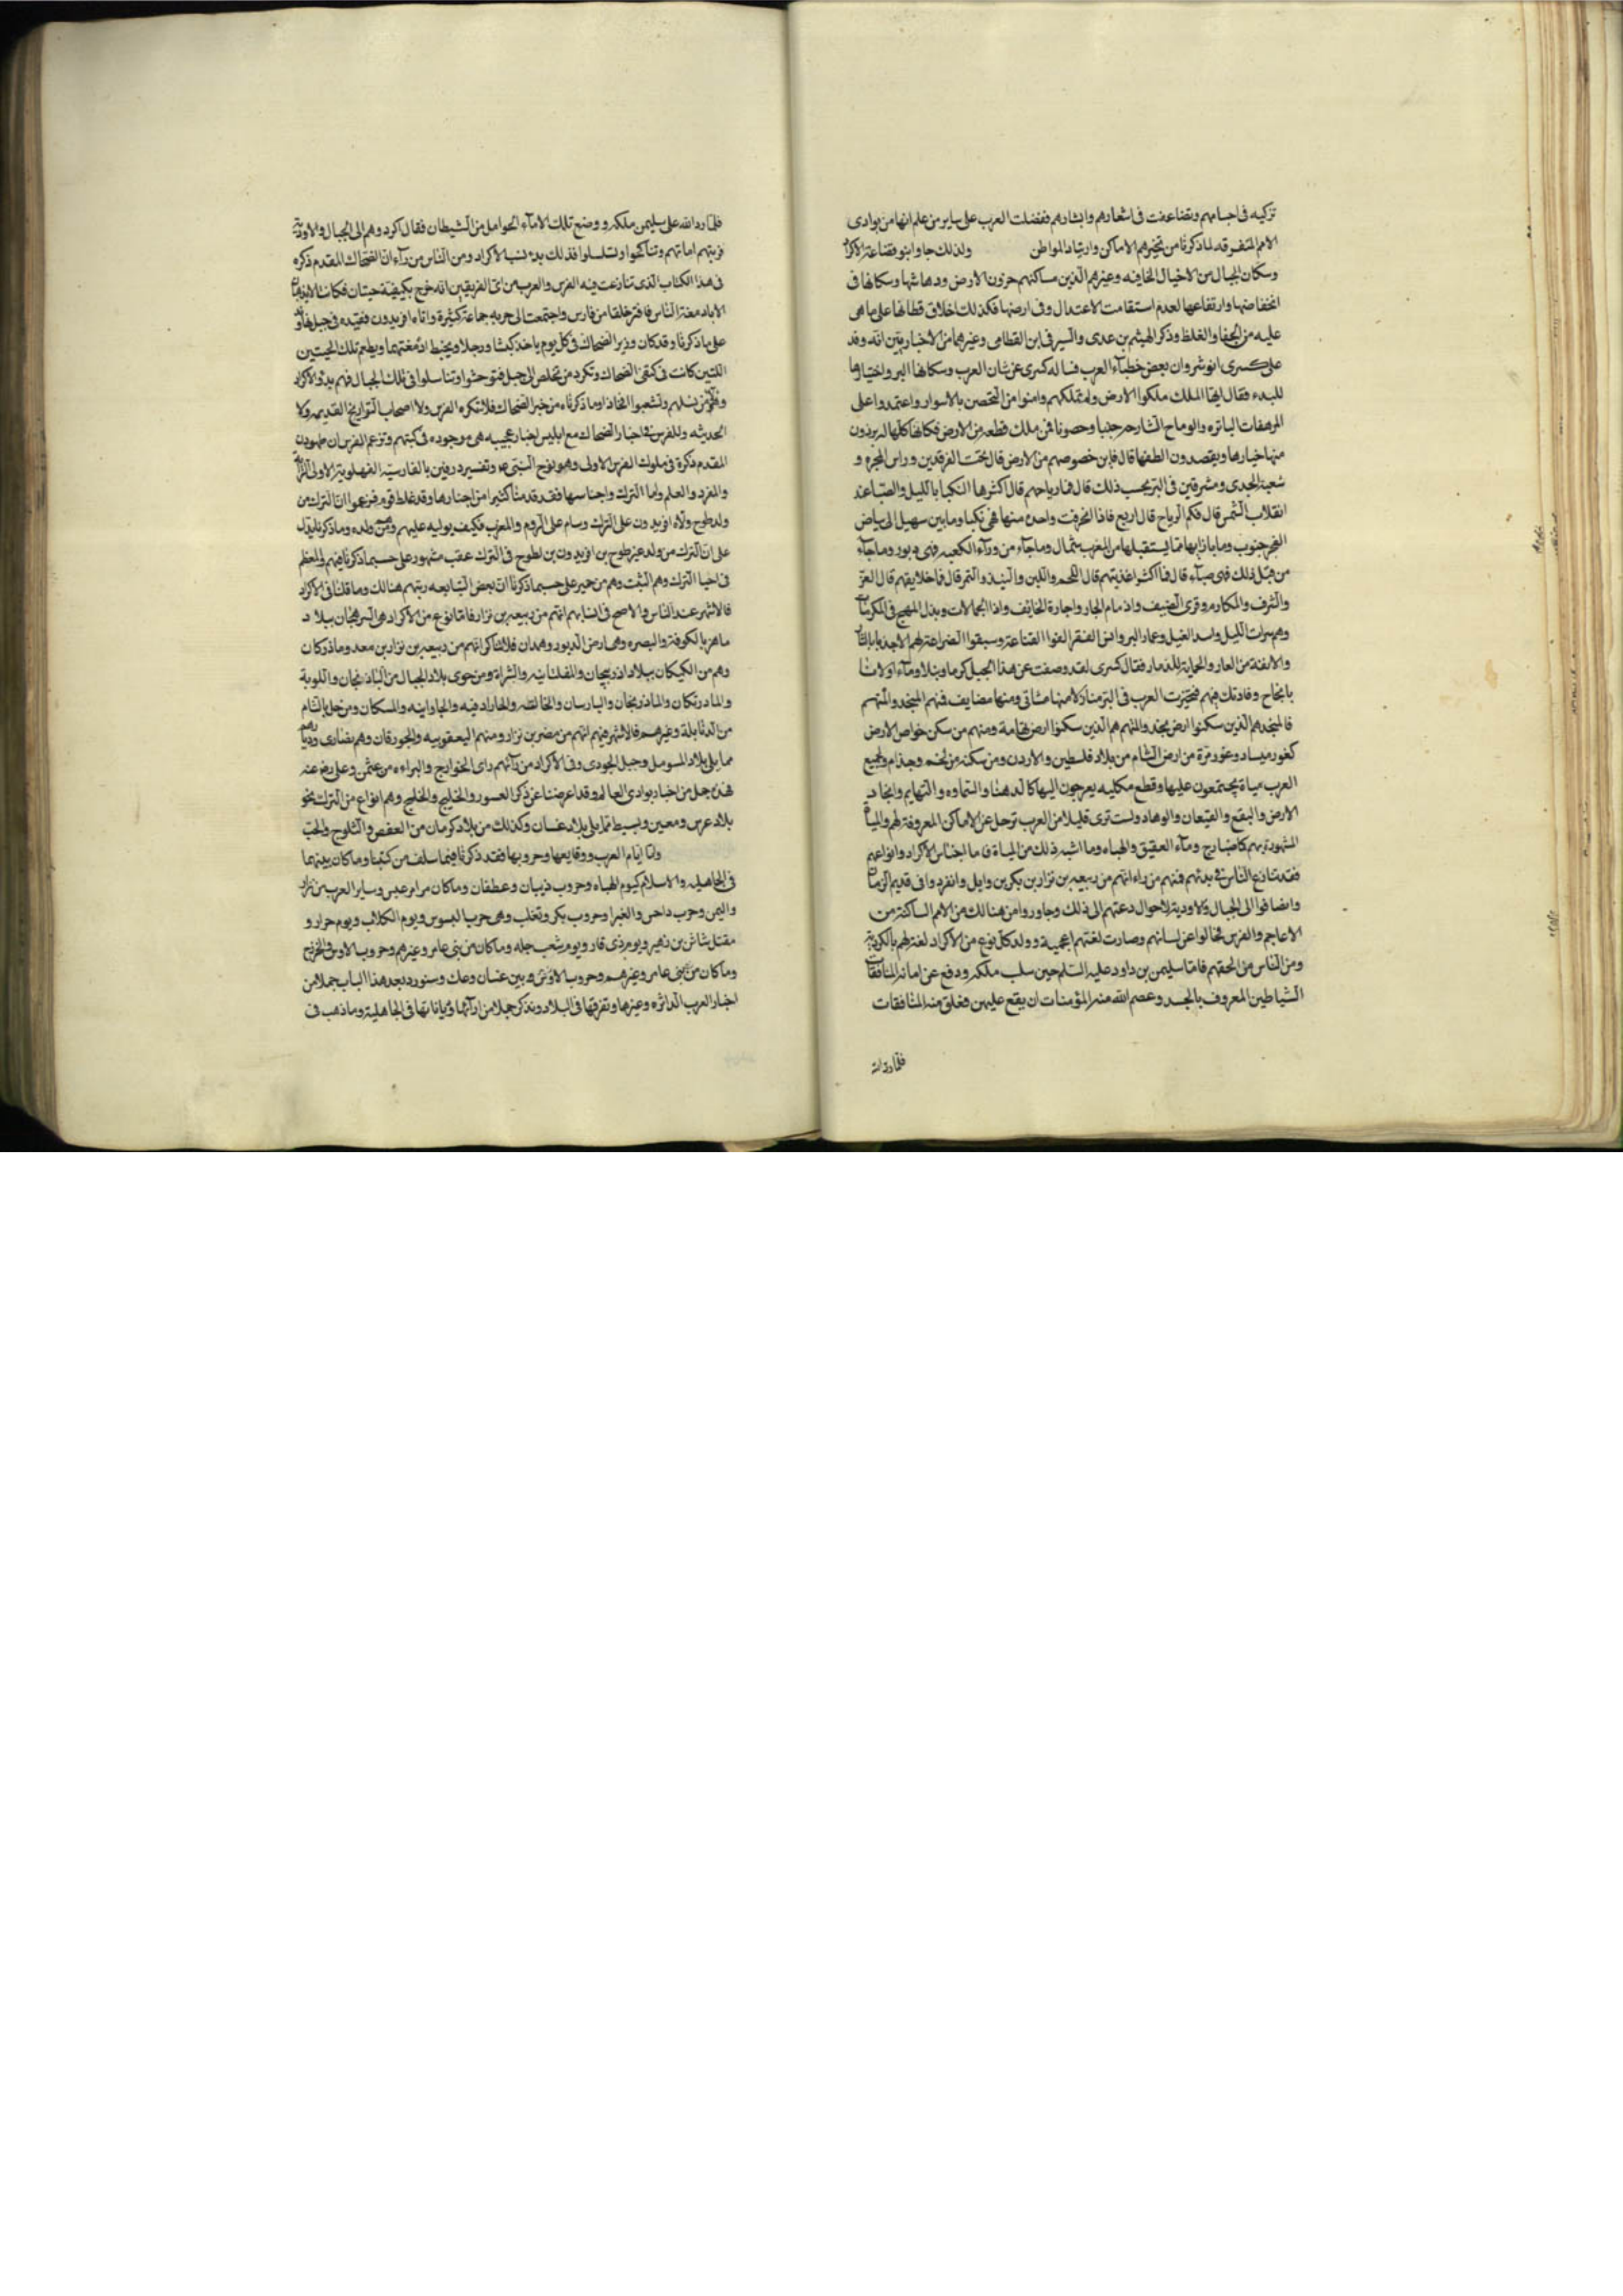 تزكيه فى اجسامهم وتضاعفت فى اشعارهم وابشارهم ففضلت العرب على ساير من علم انها من بوادى
الامم المتفرقه لما ذكرنا من تخيرهم الاماكن وارتياد المواطن ولذلك جاوا بنو فقناعة الاكراد
وسكان الجبال من الاخيال الخافيه وغيرهم الذين مساكنهم حزون الارض ودهاشها وسكانها فى
انخفاضها وارتفاعها لعدم استقامت الاعتدال وفى ارضها فكذلك اخلاق قطانها على ما هى
عليه من الجفا والغلظ وذكر الهيثم بن عدى والسير فى ابن القطامى وغيرهما من الاخباريين انه وفد
على كسرى انوشروان بعض خطبآء العرب فساله كسرى عن شان العرب وسكانها البر واختيارها
للبدء فقال ايها الملك ملكوا الارض ولم تملكهم وامنوا من التحصن بالاسوار واعتمدوا على
المرهفات الباتره والرماح الشارحه جدبا وحصونا فمن ملك قطعه من الارض فكانها كلها له يردون
منها خيارها ويقصدون الطفها قال فاين خصوصهم من الارض قال تحت الفرقدين وراس المجره و
شعبة الجدى ومشرقين فى البر بحسب ذلك قال فما رياحهم قال اكثرها النكبا بالليل والصبا عند
انقلاب الشمس قال فكم الرياح قال اربع فاذا انحرفت واحدة منها فهى نكبا وما بين سهيل الى بياض
الفجر جنوب وما بازايهما مما يستقبلها من المغرب شمال وما جآء من ورآء الكعبه فهى دبور وما جآء
من قبل ذلك فهى صبآء قال فما اكثر اغذيتهم قال اللحم واللبن والنبيذ والتمر قال فما خلايقهم قال العز
والشرف والمكارم وقرى الضيف واذمام الجار واجارة الخايف واذا الحمالات وبذل المهج فى المكرمات
وهم سراة الليل واسد الغيل وعمار البر وانس القفر الفوا القناعة وسبقوا الضراعة لهم الاخذ بالثار
والانفة من العار والحماية للذمار فقال كسرى لقد وصفت عن هذا الجيل كرما ونبلا وما اولانا
بانجاح وفادتك فيهم فتخيرت العرب فى البر منازلا منها مشاتى ومنها مضايف فمنهم المنجد والمتهم
فالمنجد هم الذين سكنوا ارض نجد والمتهم هم الذين سكنوا ارض تهامة ومنهم من سكن خواص الارض
كغور ميساد وغور مزة من ارض الشام من بلاد فلسطين والاردن ومن سكنه من لخم وجذام ولجميع
العرب مياة يجتمعون عليها وقطع مكلبه يعرجون اليها كالدهنا والسماوه والتهايم وانجاد
الارض والبقع والقيعان والوهاد ولست ترى قليلا من العرب توحل عن الاماكن المعروفة لهم والمياة
المشهورة بهم كاضارج ومآء العقيق والهباه وما اشبه ذلك من المياة فاما اجناس الاكراد وانواعهم
فقد تنازع الناس فى بدئهم فمنهم من راء انهم من ربيعه بن نزار بن بكر بن وايل وانفردوا فى قديم الزمان
وانضافوا الى الجبال والاودية لاحوال دعتهم الى ذلك وجاوروا من هنالك من الامم الساكنة من
الاعاجم والفرس فحالوا عن لسانهم وصارت لغتهم اعجمية وولد كل نوع من الاكراد لغة لهم بالكردية
ومن الناس من الحقهم فاما سليمن بن داود عليه السلم حين سلب ملكه ودفع عن امائه المنافقات
الشياطين المعروف بالجسد وعصم الله منه المؤمنات ان يقع عليهن فعلق منه المنافقات
فلما رد الله
فلما رد الله على سليمن ملكه ووضع تلك الامآء الحوامل من الشيطان فقال اكردوهم الى الجبال والاودية
فربتهم امهاتهم وتناكحوا وتسلسلوا فذلك بدء نسب الاكراد ومن الناس من رآء ان الضحاك المقدم ذكره
فى هذا الكتاب الذى تنازعت فيه الفرس والعرب من اى الفريقين انه خرج بكتفيه حيتان فكانتا لا تغذيان
الا بادمغة الناس فافنى خلقا من فارس واجتمعت الى حربه جماعة كثيرة واتاه افريدون فقيده فى جبل
على ما ذكرنا وقد كان وزير الضحاك فى كل يوم ياخذ كبشا ورجلا ويخلط ادمغتهما ويطعم تلك الحيتين
اللتين كانت فى كتفى الضحاك وتكرد من تخلص الى جبل فتوحشوا وتناسلوا فى تلك الجبال فهم بدؤ الاكراد
وهولآء من نسلهم وتشعبوا افخاذا وما ذكرناه من خبر الضحاك فلا تنكره الفرس ولا اصحاب التواريخ القديمه ولا
الحديثه وللفرس فى اخبار الضحاك مع ابليس اخبار عجيبه هى موجوده فى كتبهم وتزعم الفرس ان طهمورث
المقدم ذكرة فى ملوك الفرس الاولى وهو نوح النبى ع وتفسير درفين بالفارسية الفهلوية الاولى الراية
والمفرد والعلم واما الترك واجناسها فقد قدمنا كثيرا من اخبارها وقد غلط قوم فزعموا ان الترك من
ولد طوح ولاه افريدون على الترك وسلم على الروم والمغرب فكيف يوليه عليهم وهم من ولده وما ذكرنا يدل
على ان الترك من ولد غير طوح بن افريدون بن لطوح فى الترك عقب مشهور على حسب ما ذكرنا فيهم والمعظم
فى احيا الترك وهم التبت وهم من حمير على حسب ما ذكرنا ان بعض التبابعه رتبهم هنالك وما قلنا فى الاكراد
فالاشهر عند الناس والاصح فى انسابهم انهم من ربيعه بن نزار فاما نوع من الاكراد وهى السرهجان ببلاد
ماهر بالكوفة والبصره وهى ارض الدينور وهمدان فلا تناكر انهم من ربيعه بن نزار بن معد وماذركان
وهم من الكيكان ببلاد اذربيجان والهلبانيه والشراة ومن حوى بلاد الجبال من الباذنجان واللوبة
والمادرتكان والماذرنجان والبارسان والخاليه والحارادقيه والجاوانيه والمسكان ومن حل بالشام
من الدنابلة وغيرهم فالاشهر فيهم انهم من مضر بن نزار ومنهم اليعقوبيه والجورقان وهم نصارى وديارهم
مما يلى بلاد الموصل وجبل الجودى وفى الاكراد من رآئهم راى الخوارج والبراءه من عثمن وعلى رضى عنه
فهذه جمل من اخبار بوادى العالم وقد اعرضنا عن ذكر الغسور والخليج والخلج وهم انواع من الترك نحو
بلاد عرس ومعين وبسيط مما يلى بلاد غسان وكذلك من بلاد كرمان من القفص والبلوج والجت
واما ايام العرب ووقايعها وحروبها فقد ذكرنا فيما سلف من كتبنا وما كان بينهما
فى الجاهليه والاسلام كيوم الهباه وحروب ذبيان وعطفان وما كان من امر عبس وساير العرب من نزار
واليمن وحرب داحس والغبرا وحروب بكر وتغلب وهى حرب البسوس ويوم الكلاب ويوم حرار و
مقتل شاش بن زهير ويوم ذى قار ويوم شعب جله وما كان من بنى عامر وغيرهم وحروب الاوس والخزرج
وما كان من بنى عامر وغيرهم وحروب الاوس وبين غسان وعك وسنورد بعد هذا الباب جملا من
اخبار العرب الداثره وغيرها وتفرقها فى البلاد ونذكر جملا من ارآئها ودياناتها فى الجاهلية وما ذهب فى